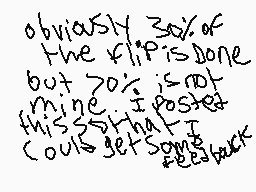 obviously 30% of
the flip is Done
but 70% is not
mine. I Posted
this so that I
Could get some
feedback